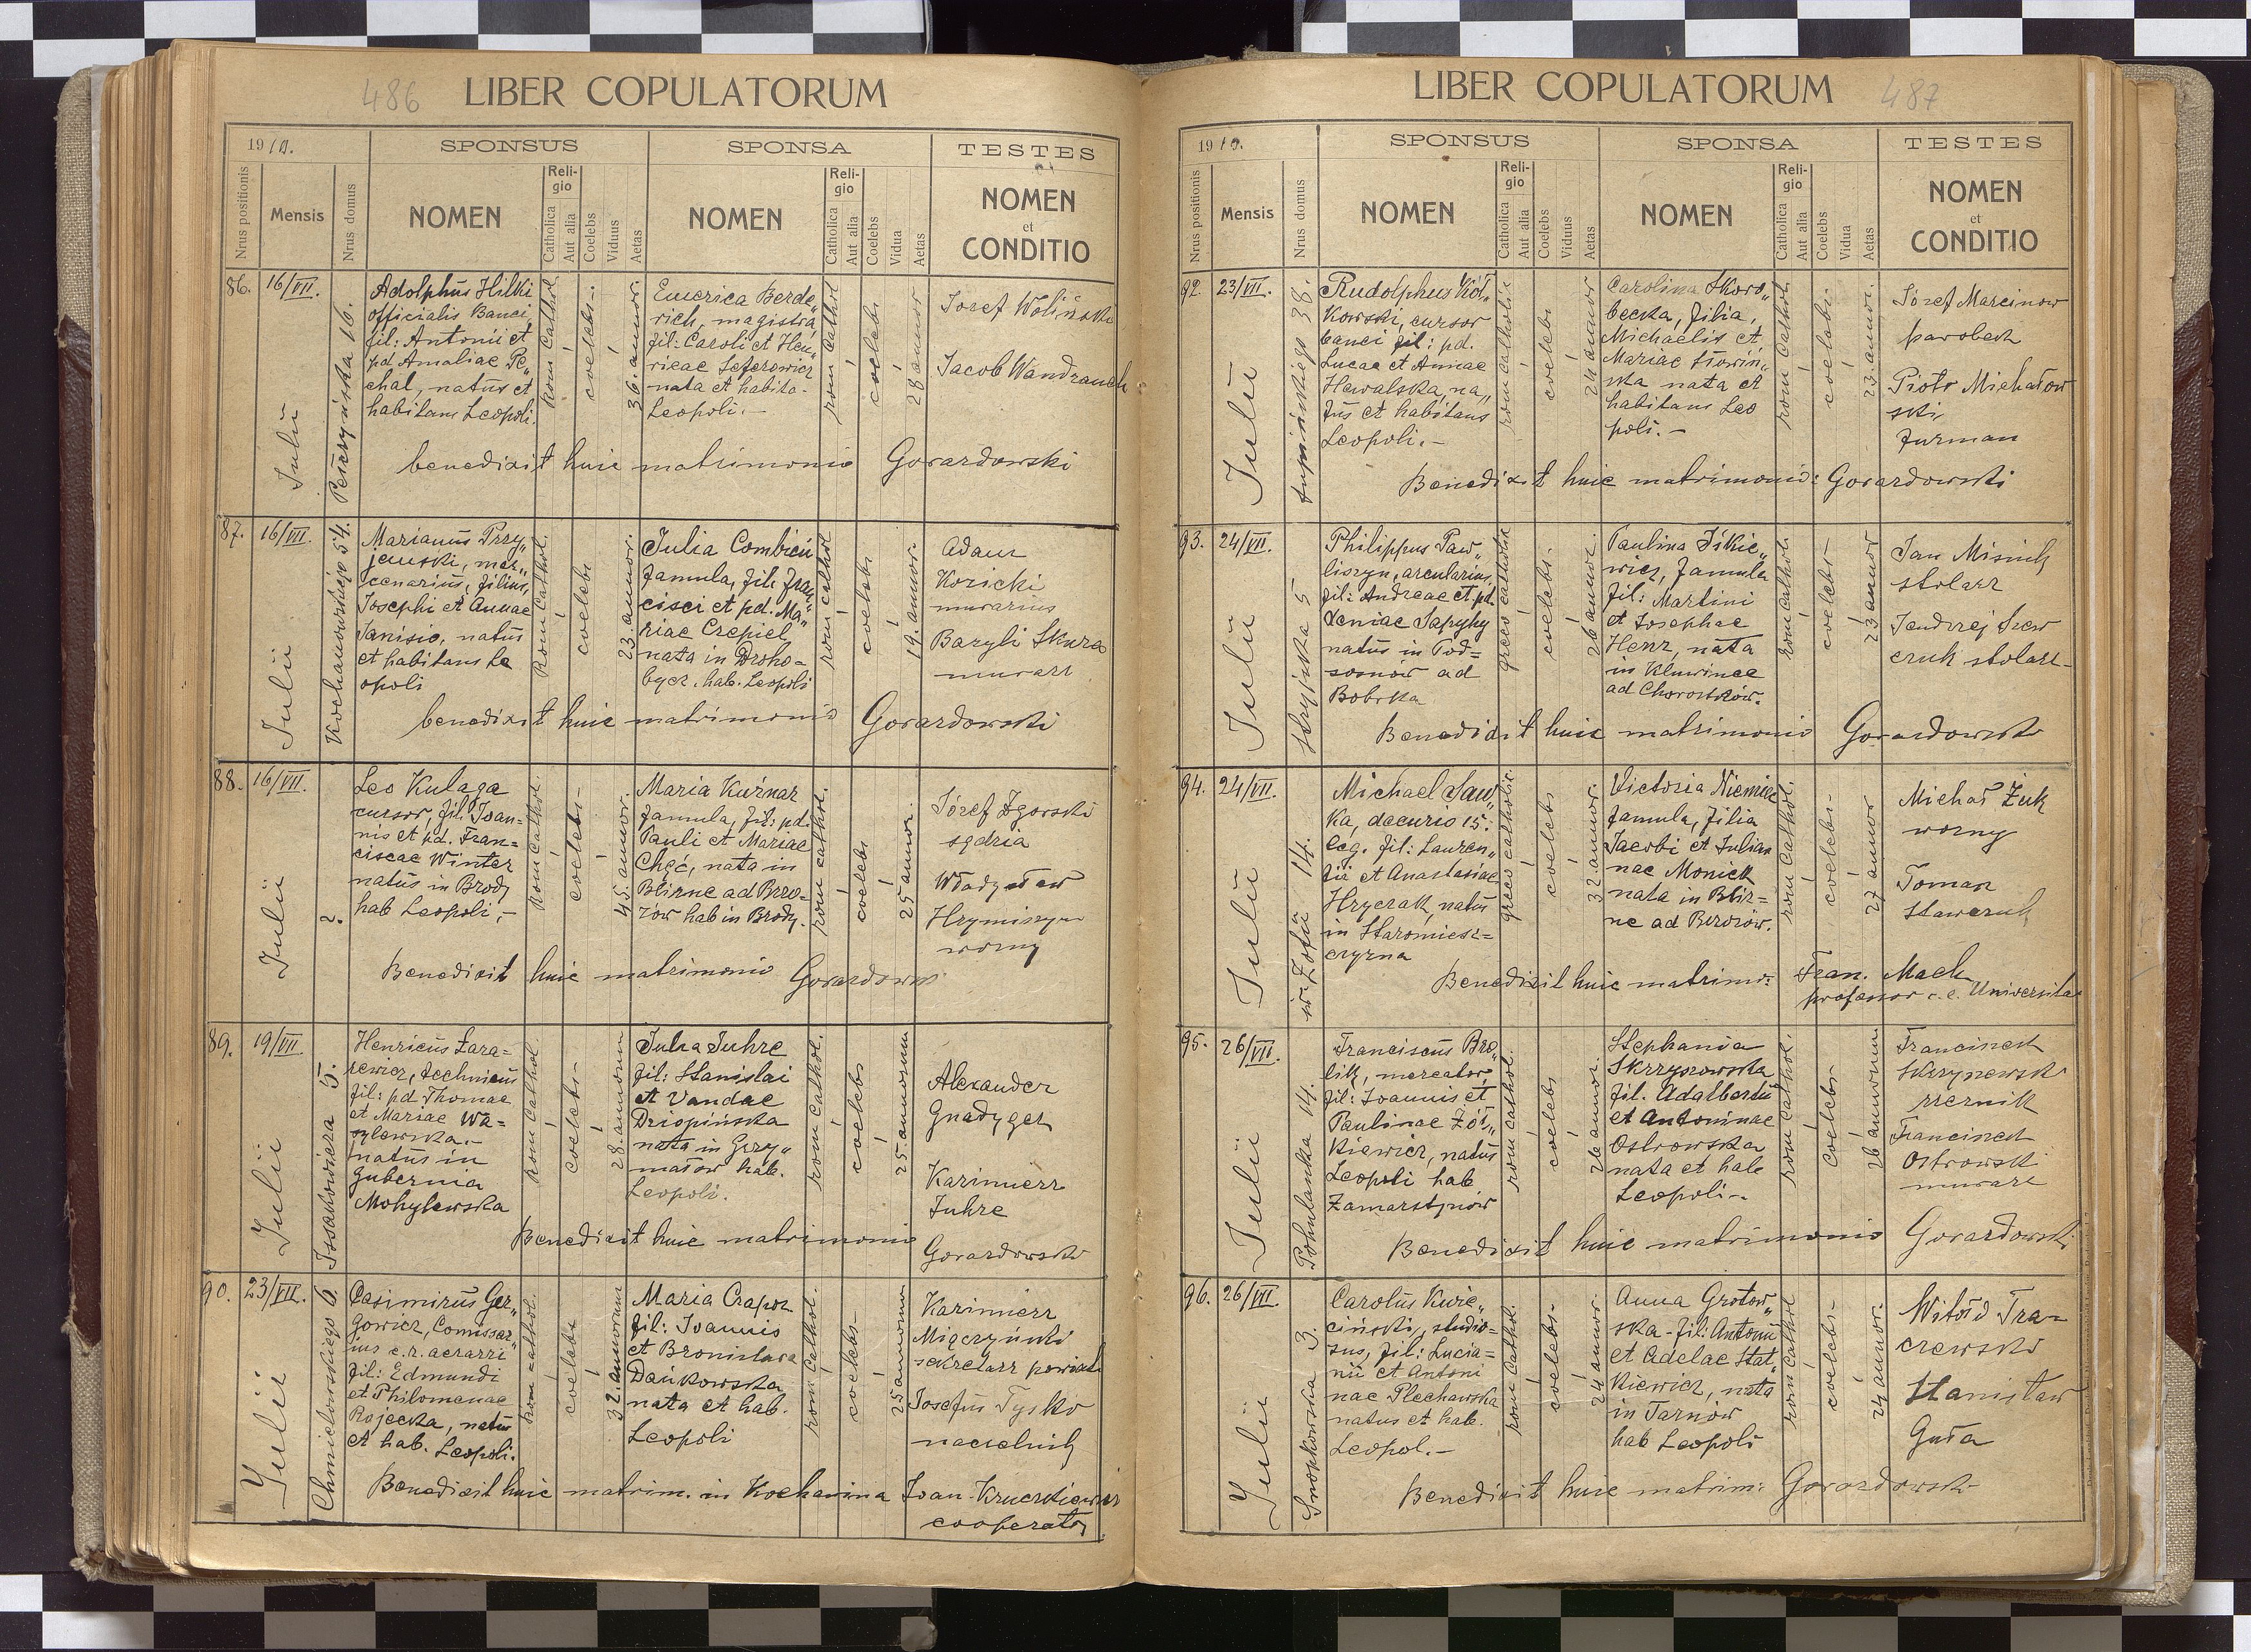 486 LIBER COPULATORUM
1910. SPONSUS SPONSA TESTES
Nrus positionis Mensis Nrus domus NOMEN Religio Catholica Aut alia Coelebs Viduus Aetas NOMEN Religio Catholica Aut alia Coelebs Vidua Aetas NOMEN et CONDITIO
86. 16/VII. Julii
Pełczyńska 16.
Adolphus Hilki
officialis Banci
fil: Antonii et
pd Amaliae Pe„
chal, natus et
habitans Leopoli.
rom cathol.
coelebs
36. annor.
Emerica Berde„
rich, magistra
fil: Caroli et Hen„
ricae Seferowicz
nata et habita-
Leopoli.-
rom cathol
coelebs
28 annor
Josef Woliński
Jacob Wandrauch
benedixit huic matrimonio Gorazdowski
87. 16/VII. Julii
Kochanowskiego 54.
Marianus Przy„
jemski, mer„
cenarius, filius,
Josephi et Annae
Janisio, natus
et habitans Le
opoli
Rom Cathol.
coelebs
23. annor.
Julia Combicü
famula, fil: Fran
cisci et pd: Ma„
riae Crepiel,
nata in Droho-
bycz, hab. Leopoli
rom cathol
coelebs
19. annor.
Adam
Kozicki
murarius
Bazyli Skura
murarz
benedixit huic matrimonio Gorazdowski
88. 16/VII. Julii
?
Leo Kulaga
cursor, fil: Joan=
nis et pd. Fran=
ciscae Winter
natus in Brody
hab Leopoli,-
Rom Cathol.
coelebs-
45. annor.
Maria Kuźnar
famula, fil: pd.
Pauli et Mariae
Chęć, nata in
Blizne ad Brzo=
zów hab in Brody.
rom cathol.
coelebs
25 annor.
Józef Zgorski
sędzia
Władysław
Hrymiszyn
woźny
Benedixit huic matrimonio Gorazdowski
89. 19/VII Julii
Issakowicza 5.
Henricus Zara=
kewicz, technicus
fil: pd Thomae
et Mariae Wa=
sylewska.-
natus in
Gubernia
Mohylewska
Rom Cathol.
coelebs-
28. annorum
Julia Juhre
fil: Stanislai
et Vandae
Dziopińska
nata in Grzy„
małów hab.
Leopoli.
rom Cathol.
coelebs
25. annorum
Alexander
Gnadyger
Kazimierz
Juhre
Benedixit huic matrimonio Gorazdowski
90. 23/VII. Julii
Chmielowskiego 6.
Casimirus Ger„
gowicz, Comissar„
ius c.r. aerarii
fil: Edmundi
et Philomenae
Rojecka, natus
et hab. Leopoli.
Rom cathol.
coelebs
32. annorum
Maria Czapor
fil: Joannis
et Bronislava
Dańkowska
nata et hab.
Leopoli
rom Cathol.
coelebs-
25 annorum
Kazimierz
Migczyński
sekretarz powiatu
Josefus Tysko
naczelnik
Benedixit huic matrim. in Kochawina Joan Kruczkiewicz
cooperator
LIBER COPULATORUM 487
1910. SPONSUS SPONSA TESTES
Nrus positionis Mensis Nrus domus NOMEN Religio Catholica Aut alia Coelebs Viduus Aetas NOMEN Religio Catholica Aut alia Coelebs Vidua Aetas NOMEN et CONDITIO
92. 23/VII. Julii
Supińskiego 38.
Rudolphus Kot„
kowski, cursor
banci fil: pd.
Lucae et Annae
Hawalska, na„
tus et habitans
Leopoli.-
rom catholic
coelebs
24 annor
Carolina Skoro„
becka, filia,
Michaelis et
Mariae Słowiń„
ska nata et
habitans Leo
poli.-
rom Cathol.
coelebs.
23. annor.
Józef Marcinow
parobek
Piotr Michałow
ski
furman
Benedixit huic matrimonio: Gorazdowski
93. 24/VII. Julii
Stryjska 5
Philippus Paw„
liszyn, arcularius,
fil: Andreae et pd.
Xeniae Sapyhy
natus in Pod=
sosnów ad
Bobrka
greco catholic
coelebs.
26 annor.
Paulina Iśkie„
wicz, famula
fil: Martini
et Josephae
Henz, nata
in Kluwince
ad Chorostków.
rom Cathol.
coelebs-
23 annor
Jan Misiuk
stolarz
Jendrzej Szew
czuk stolarz-
Benedixit huic matrimonio Gorazdowski
94. 24/VII. Julii
św. Zofii 14.
Michael Saw„
ka, decurio 15.
leg. fil: Lauren„
tii et Anastasiae
Hryczak, natus
in Staromiesz=
czyzna
greco catholic.
coelebs
32. annor.
Victoria Niemiec
famula, filia
Jacobi et Julian
nae Monick
nata in Bliz=
ne ad Brzozów.
rom Cathol.
coelebs-
27 annor
Michał Żuk
woźny
Tomasz
Sławczuk
Benedixit huic matrimo: Fran. Mach
professor c.c. Universitae
95. 26/VII. Julii
Pohulanka 14.
Franciscus Bro„
lik, mercator
fil: Joannis et
Paulinae Żół„
kiewicz, natus
Leopoli hab
Zamarstynów
rom Cathol.
coelebs
26 annor.
Stephania
Skrzypowska
fil. Adalberti
et Antoninae
Ostrowska
nata et hab
Leopoli-.
rom Cathol.
coelebs-
26 annorum
Franciszek
Skrzynewski
rzeźnik
Franciszek
Ostrowski
murarz
Benedixit huic matrimonio Gorazdowski
96. 26/VII. Julii
Snopkowska 3.
Carolus Kwie„
ciński, studio=
sus, fil: Lucia=
nii et Antoni
nae Plechawska
natus et hab.
Leopol.-
rom Cathol.
coelebs-
24 annor.
Anna Grotow„
ska-fil: Antonii
et Adelae Stat„
kiewicz, nata
in Tarnów
hab Leopoli
rom Cathol
coelebs-
24 annor.
Witołd Tra-
czewski
Stanisław
Guła
Benedixit huic matrim: Gorazdowski